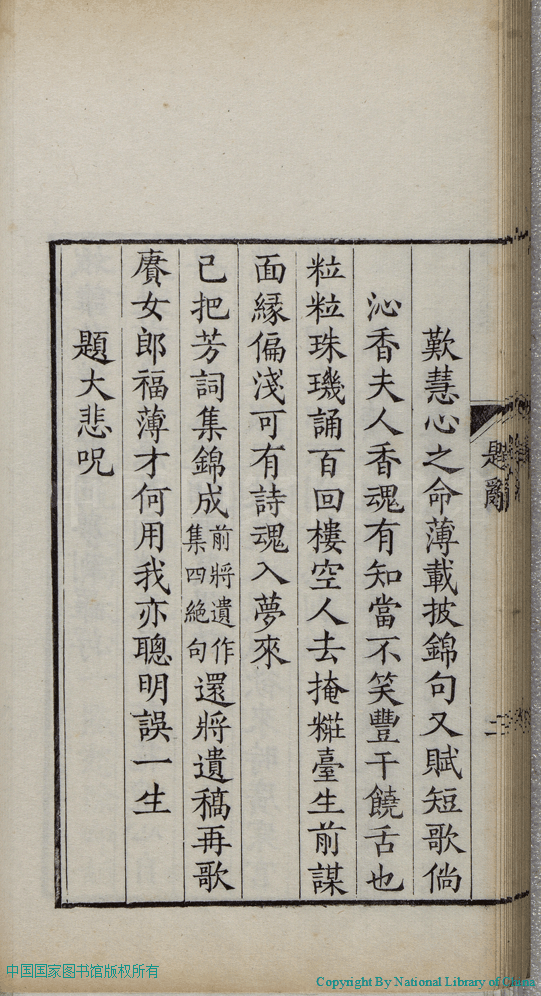 歎慧心之命薄載披錦句又賦短歌倘
沁香夫人香魂有知當不笑豐干饒舌也
粒粒珠璣誦百回樓空人去掩糚臺生前謀
面緣偏淺可有詩魂入夢來
已把芳詞集錦成前將遺作集四絶句還將遺稿再歌
賡女郎福薄才何用我亦聰明誤一生
題大悲呪
題辭
二
中国国家图书馆版权所有
Copyright By National Library of China